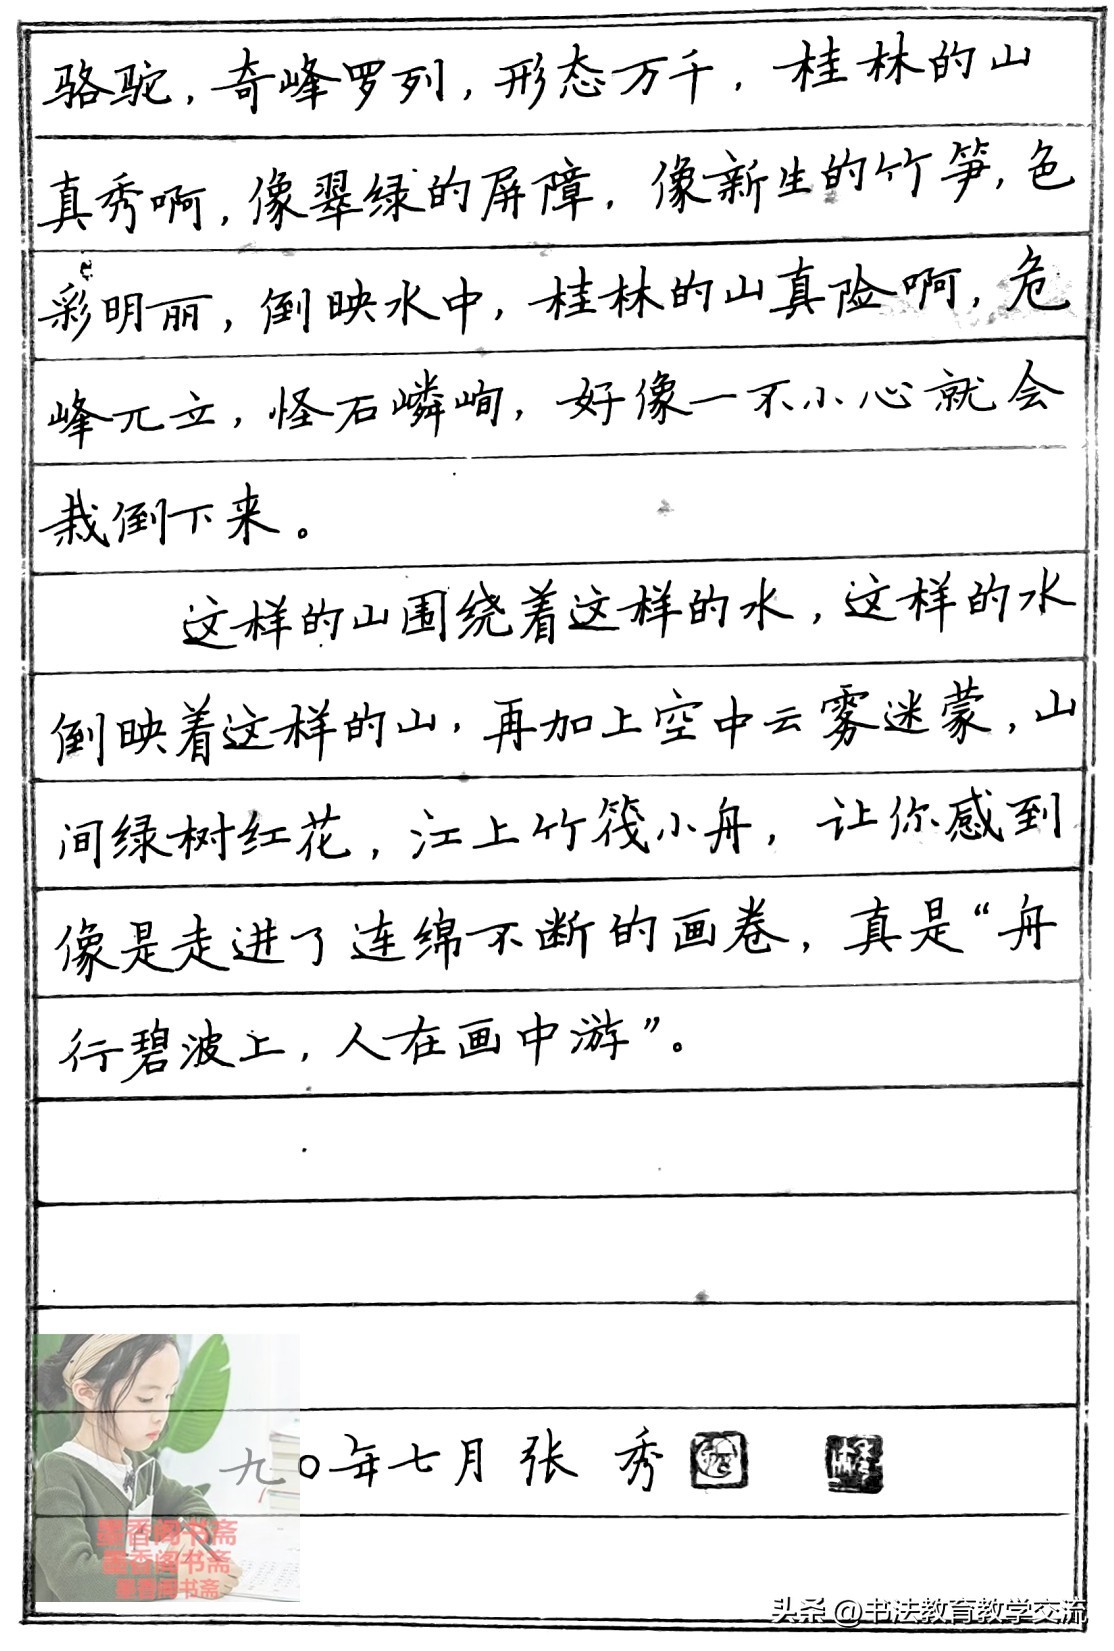 骆驼，奇峰罗列，形态万千，桂林的山
真秀啊，像翠绿的屏障，像新生的竹笋，色
彩明丽，倒映水中，桂林的山真险啊，危
峰兀立，怪石嶙峋，好像一不小心就会
栽倒下来。
这样的山围绕着这样的水，这样的水
倒映着这样的山，再加上空中云雾迷蒙，山
间绿树红花，江上竹筏小舟，让你感到
像是走进了连绵不断的画卷，真是“舟
行碧波上，人在画中游”。
九〇年七月张 秀
墨香阁书斋
墨香阁书斋
墨香阁书斋
头条 @书法教育教学交流